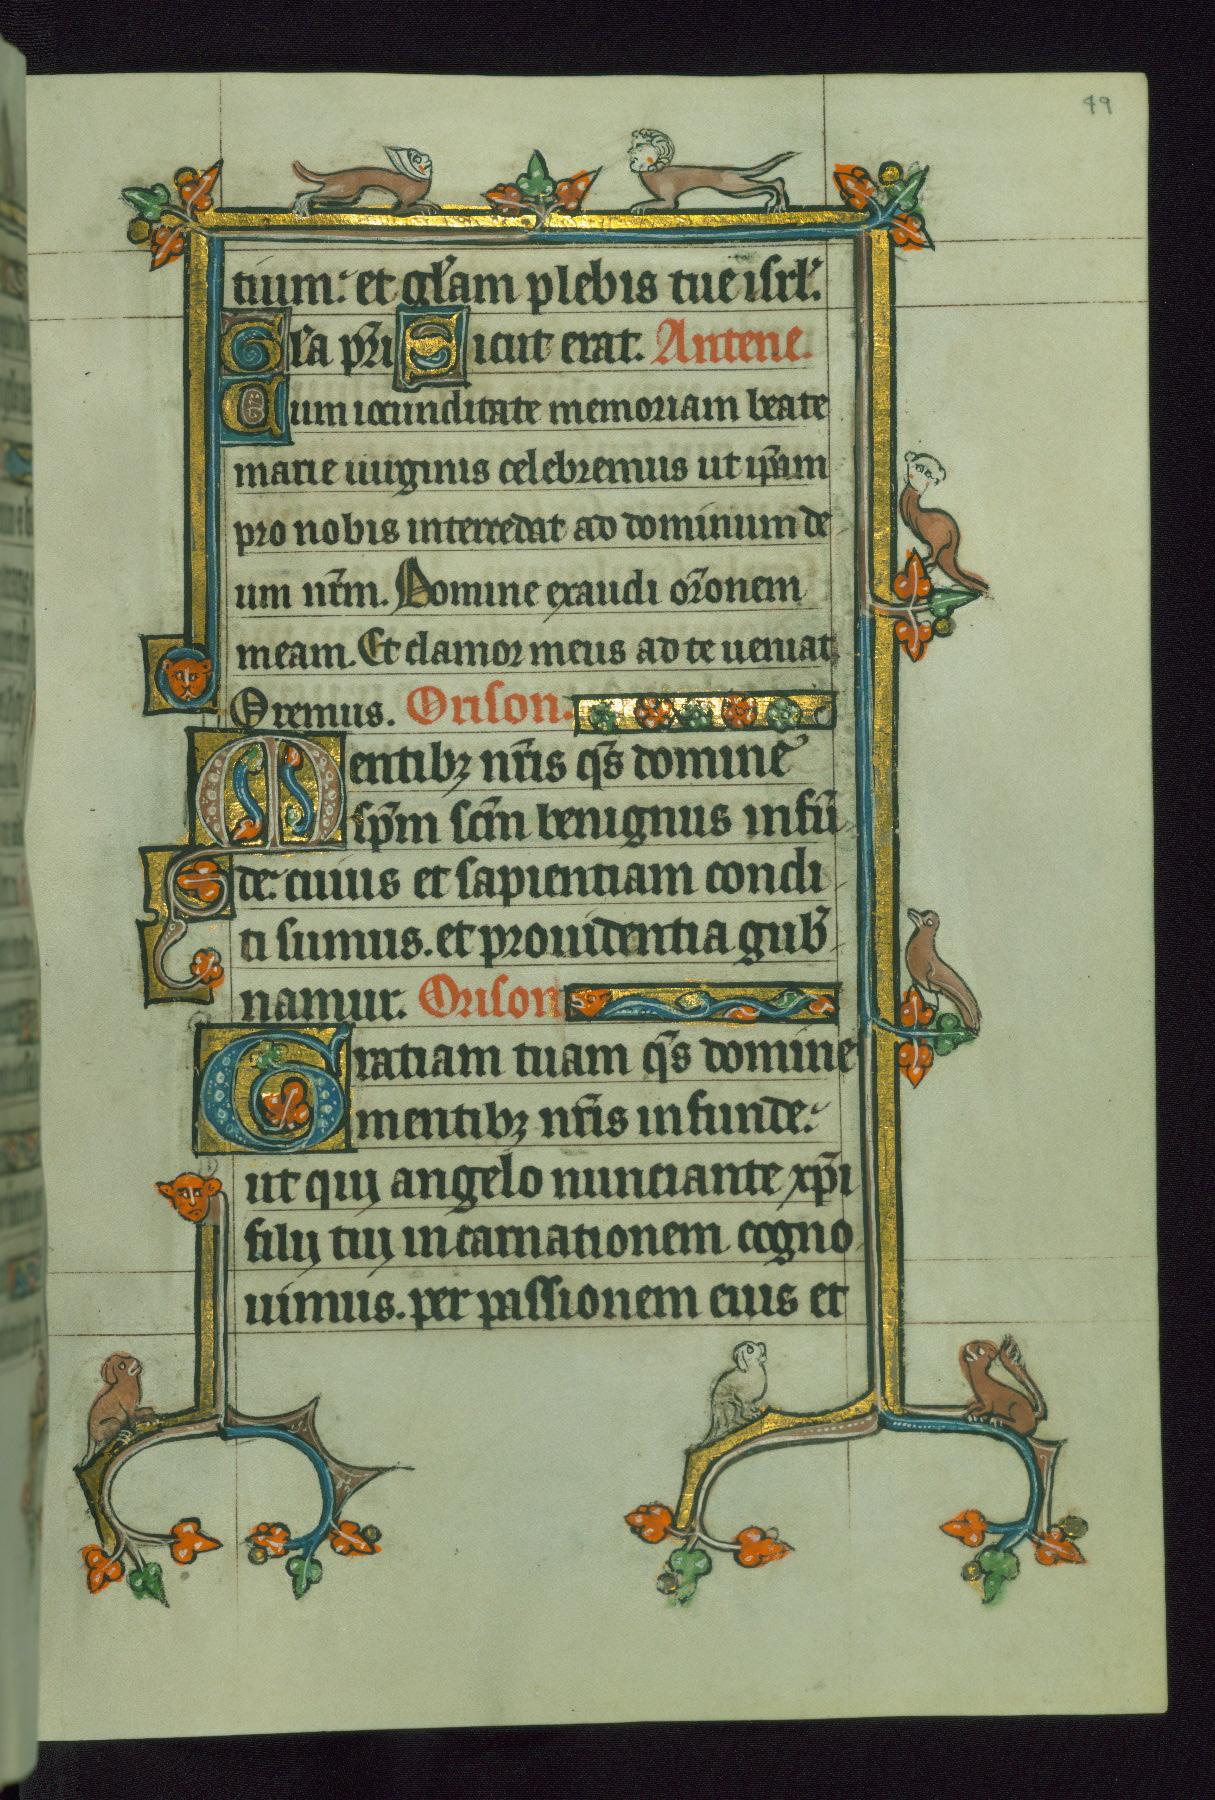 49
tium. et gl̄am plebis tue isrl̄.
Gl̄a pr̄i Sicut erat. Antene.
Cum iocunditate memoriam beate
marie uirginis celebremus ut ip̄am
pro nobis intercedat ad dominum de
um nr̄m. Domine exaudi or̄onem
meam. Et clamor meus ad te ueniat
Oremus. Orison.
Mentibꝫ nr̄is qs̄ domine
sp̄m sc̄m benignus infū
de. cuius et sapientiam condi
ti sumus. et prouidentia gub̄
namur. Orison
Gratiam tuam qs̄ domine
mentibꝫ nr̄is infunde.
ut qui angelo nunciante xp̄i
filij tui incarnationem cogno
uimus. per passionem eius et